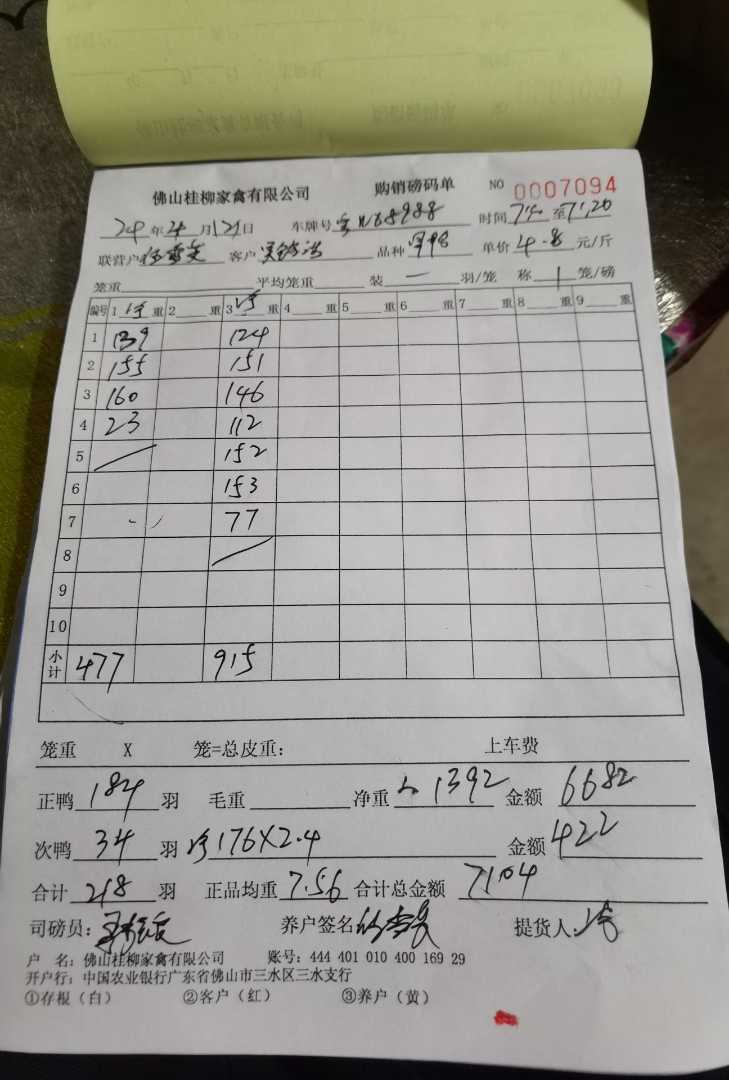 佛山桂柳家禽有限公司 购销磅码单 NO 0007094
24年4月12日 车牌号 W68988 时间 至
联营户 客户 品种 单价4.8元/斤
笼重 平均笼重 装一羽/笼 称1笼/磅
编号 1 净 重 2 重 3 净 重 4 重 5 重 6 重 7 重 8 重 9 重
1 139 124
2 155 151
3 160 146
4 23 112
5 152
6 153
7 77
8
9
10
小计 477 915
笼重 X 笼=总皮重: 上车费
正鸭184羽 毛重 净重 1392 金额 6682
次鸭 34 羽 净176X2.4 金额422
合计 218 羽 正品均重 7.56 合计总金额 7104
司磅员: 养户签名 提货人
户 名: 佛山桂柳家禽有限公司 账号: 444 401 010 400 169 29
开户行: 中国农业银行广东省佛山市三水区三水支行
①存根(白) ②客户(红) ③养户(黄)